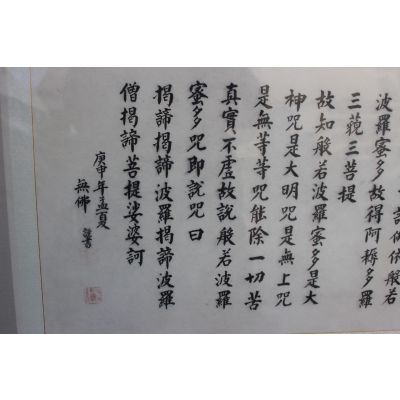 依般若
波羅蜜多故得阿耨多羅
三藐三菩提
故知般若波羅蜜多是大
神咒是大明咒是無上咒
是無等等咒能除一切苦
真實不虛故說般若波羅
蜜多咒即說咒曰
揭諦揭諦波羅揭諦波羅
僧揭諦菩提娑婆訶
庚申年孟夏
無佛